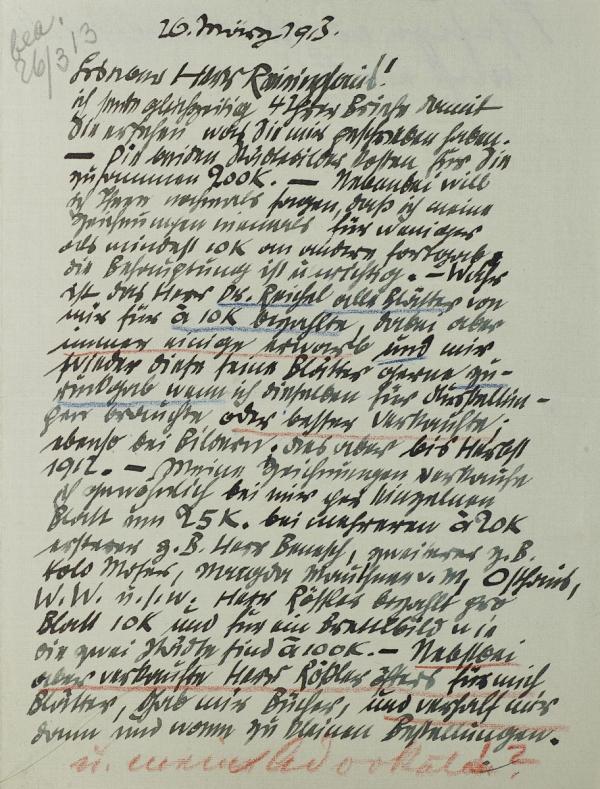 bea.
26/3 13
26. März 1913.
Lieber Herr Reininghaus!
ich sende gleichzeitig 4 Ihrer Briefe damit
Sie ersehen was Sie mir geschrieben haben.
— Die beiden Städtebilder kosten für Sie
zusammen 200 K. — Nebenbei will
ich Ihnen nochmals sagen, daß ich meine
Zeichnungen niemals für weniger
als mindest 10 K an andere fortgab,
die Behauptung ist unrichtig. – Wahr
ist, das Herr Dr. Reichel alle Blätter von
mir für à 10 K bezahlte, dabei aber
immer einige erwarb und mir
wieder diese seine Blätter gerne zu-
rückgab wenn ich dieselben für Ausstellun-
gen brauchte oder besser verkaufte;
ebenso bei Bildern. das aber bis Herbst
1912. — Meine Zeichnungen verkaufe
ich gewöhnlich bei mir per einzelnen
Blatt um 25 K. bei mehreren à 20 K
ersterer z. B. Herr Benesch, zweiteres z. B.
Kolo Moser, Magda Mautner v. M, Osthaus,
W. W. u. s. w. Herr Rößler bezahlt pro
Blatt 10 K und für ein Brettlbild wie
die zwei Städte sind à 100 K. — Nebstbei
aber verkaufte Herr Rößler öfters für mich
Blätter, gab mir Bücher, und verhalf mir
dann und wann zu kleinen Bestellungen.
u. mein Advokat!?